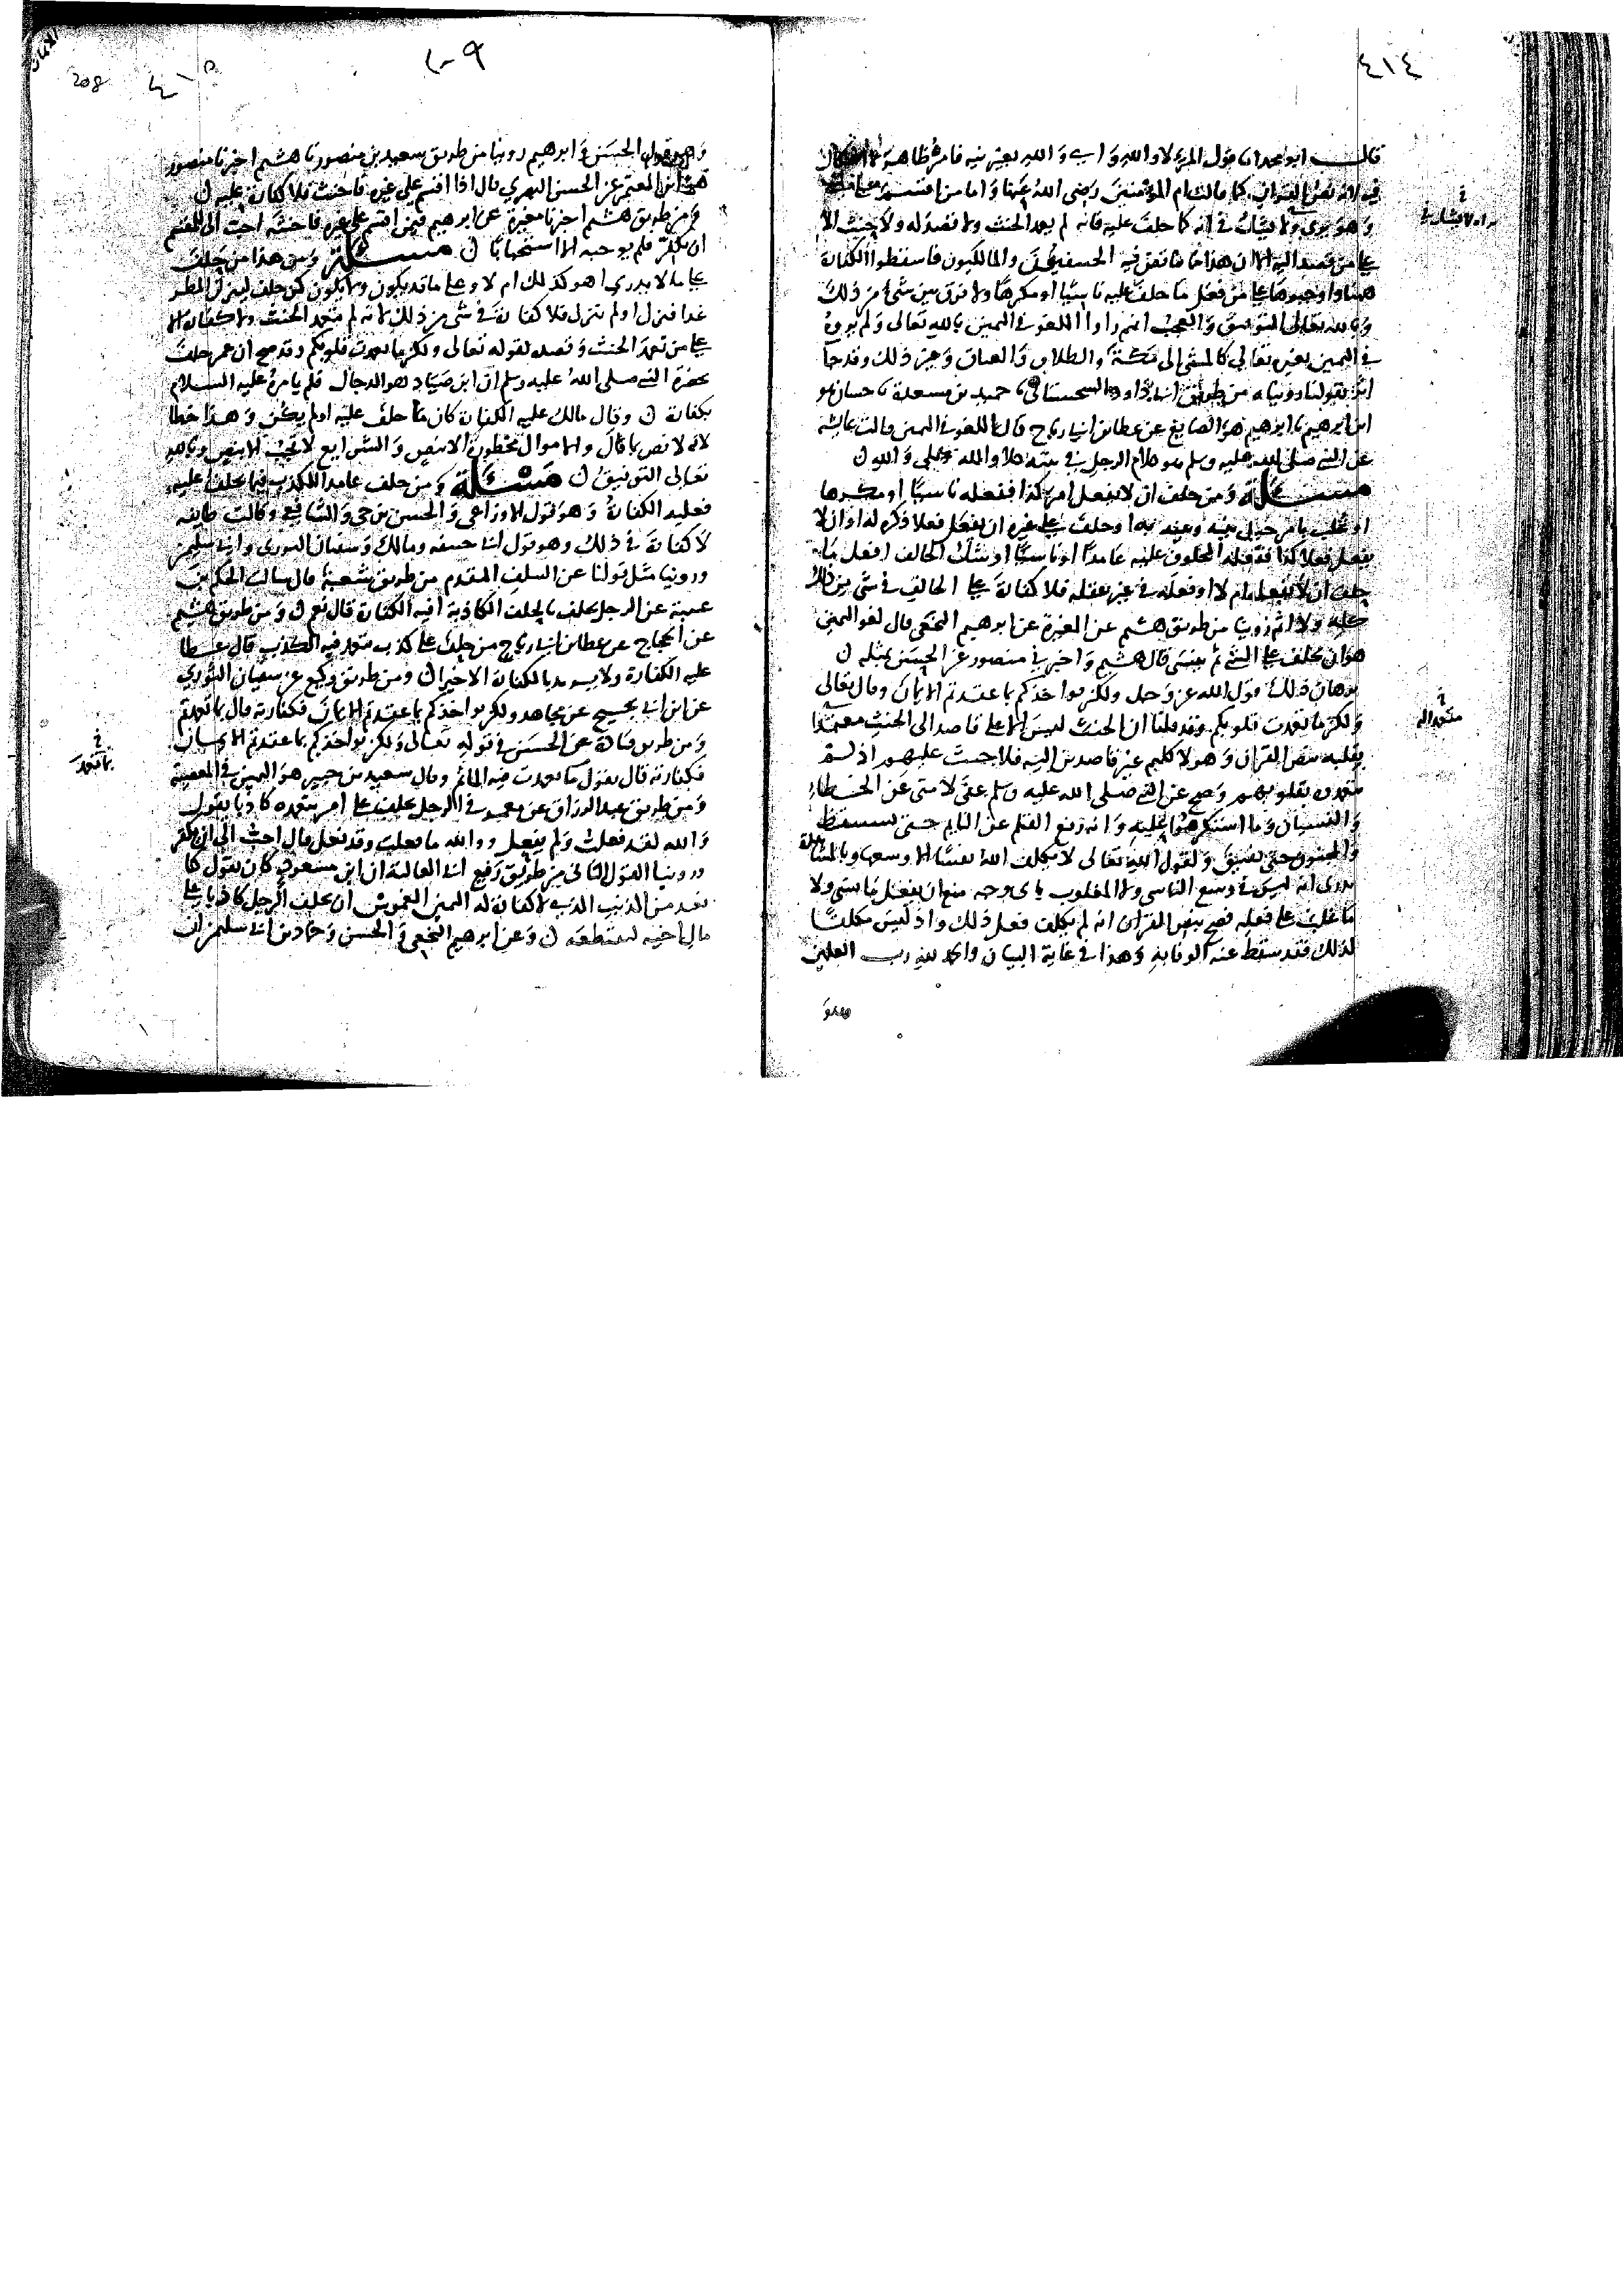 ٤١٤
قال ابو محمد اما قول المرء لا والله واي والله بغير نيه فامره ظاهر لا اشكال
فيه لانه نص القران كما قالت ام المؤمنين رضي الله عنها واما من اقسم على
وهو يرى ولا يشك في انه كما حلف عليه فانه لم يعمد الحنث ولا قصد له ولا حنث الا
على من قصد اليه الا ان هذا مما تناقض فيه الحنفيون والمالكيون فاسقطوا الكفارة
ههنا واوجبوها على من فعل ما حلف عليه ناسيا او مكرها ولا فرق بين شي من ذلك
وبالله تعالى التوفيق والعجب انهم راوا اللغو في اليمين بالله تعالى ولم يروه
في اليمين بغيره تعالى كالمشي الى مكة والطلاق والعتاق وغير ذلك وقد جا
اثر بقولنا رويناه من طريق ابي داود السجستاني نا حميد بن مسعدة نا حسان هو
ابن ابرهيم نا ابرهيم هو الصايغ عن عطا بن ابي رباح قال اللغو في اليمين قالت عايشه
عن النبي صلى الله عليه وسلم هو كلام الرجل في بيته كلا والله وبلى والله ن
مسئلة ومن حلف ان لا يفعل امر كذا ففعله ناسيا او مكرها
او غلب بامر حيل بينه وبينه به او حلف على غيره ان يفعل فعلا ذكره له او ان لا
يفعل فعلا كذا ففعله المحلوف عليه عامدا او ناسيا او شك الحالف افعل ما
حلف ان لا يفعله ام لا او فعله في غير عقله فلا كفارة على الحالف في شي من ذلك
كله ولا اثم روينا من طريق هشيم عن المغيرة عن ابرهيم النخعي قال لغو اليمين
هو ان يحلف على الشي ثم ينسى قال هشيم واخبرني منصور عن الحسن بمثله ن
برهان ذلك قول الله عز وجل ولكن يواخذكم بما عقدتم الايمان وقال تعالى
ولكن ما تعمدت قلوبكم فقد قلنا ان الحنث ليس الا على قاصد الى الحنث معتمدا
بقلبه بنص القران وهولا كلهم غير قاصدين اليه فلا حنث عليهم اذ لم
يتعمدوه بقلوبهم وصح عن النبي صلى الله عليه وسلم عفي لامتي عن الخطاء
والنسيان وما استكرهوا عليه وانه رفع القلم عن النايم حتى يستيقظ
والمجنون حتى يفيق ولقول الله تعالى لا يكلف الله نفسا الا وسعها وبالمشاهدة
ندري انه ليس في وسع الناسي ولا المغلوب باي وجه منع ان يفعل ما نسي ولا
ما غلب على فعله فصح بنص القران انه لم يكلف فعل ذلك واذ ليس مكلفا
لذلك فقد سقط عنه الوفا به وهذا في غاية البيان والحمد لله رب العلمين
وهو
٢٠٩
٤١٥
208
وهو قول الحسن وابرهيم روينا من طريق سعيد بن منصور نا هشيم اخبرنا منصور
هو ابن المعتمر عن الحسن البصري قال اذا اقسم على غيره فاحنث فلا كفارة عليه ن
ومن طريق هشيم اخبرنا مغيرة عن ابرهيم فيمن اقسم على غيره فاحنثه احب الى للمقسم
ان يكفر فلم يوجبه الا استحبابا ن مسئلة ومن هذا من حلف
على ما لا يدري اهو كذلك ام لا وعلى ما قد يكون ولا يكون كمن حلف لينزلن المطر
غدا فنزل او لم ينزل فلا كفارة في شي من ذلك لانه لم يتعمد الحنث ولا كفارة الا
على من تعمد الحنث وقصده لقوله تعالى ولكن ما تعمدت قلوبكم وقد صح ان عمر حلف
بحضرة النبي صلى الله عليه وسلم ان ابن صياد لهو الدجال فلم يامره عليه السلام
بكفارة ن وقال مالك عليه الكفارة كان ما حلف عليه او لم يكن وهذا خطا
لانه لا نص بما قال والاموال محظورة الا بنص والشرايع لا تجب الا بنص وبالله
تعالى التوفيق ن مسئلة ومن حلف عامدا للكذب فيما يحلف عليه
فعليه الكفارة وهو قول الاوزاعي والحسن بن حي والشافعي وقالت طايفه
لا كفارة في ذلك وهو قول ابي حنيفه ومالك وسفيان الثوري وابي سليمن
وروينا مثل قولنا عن السلف المتقدم من طريق شعبة قال سالت الحكم بن
عتيبة عن الرجل يحلف بالحلف الكاذبة افيه الكفارة قال نعم ن ومن طريق هشيم
عن الحجاج عن عطا بن ابي رباح من حلف على كذب يتعمد فيه الكذب قال عطا
عليه الكفارة ولا يزيد بالكفارة الا خيرا ن ومن طريق وكيع عن سفيان الثوري
عن ابن ابي نجيح عن مجاهد ولكن يواخذكم بما عقدتم الايمان فكفارته قال بما تعمدتم
ومن طريق قتادة عن الحسن في قوله تعالى ولكن يواخذكم بما عقدتم الايمان
فكفارته قال يقول ما تعمدت فيه الماثم وقال سعيد بن جبير هو اليمين في المعصية
ومن طريق عبد الرزاق عن معمر في الرجل يحلف على امر يتعمده كاذبا يقول
والله لقد فعلت ولم يفعل ووالله ما فعلت وقد فعل قال احب الي ان يكفر
وروينا القول الثاني من طريق رفيع ابي العالية ان ابن مسعود كان يقول كنا
نعد من الذنب الذي لا كفارة له اليمين الغموس ان يحلف الرجل كاذبا على
مال اخيه ليقتطعه ن وعن ابرهيم النخعي والحسن وحماد بن ابي سليمن ان